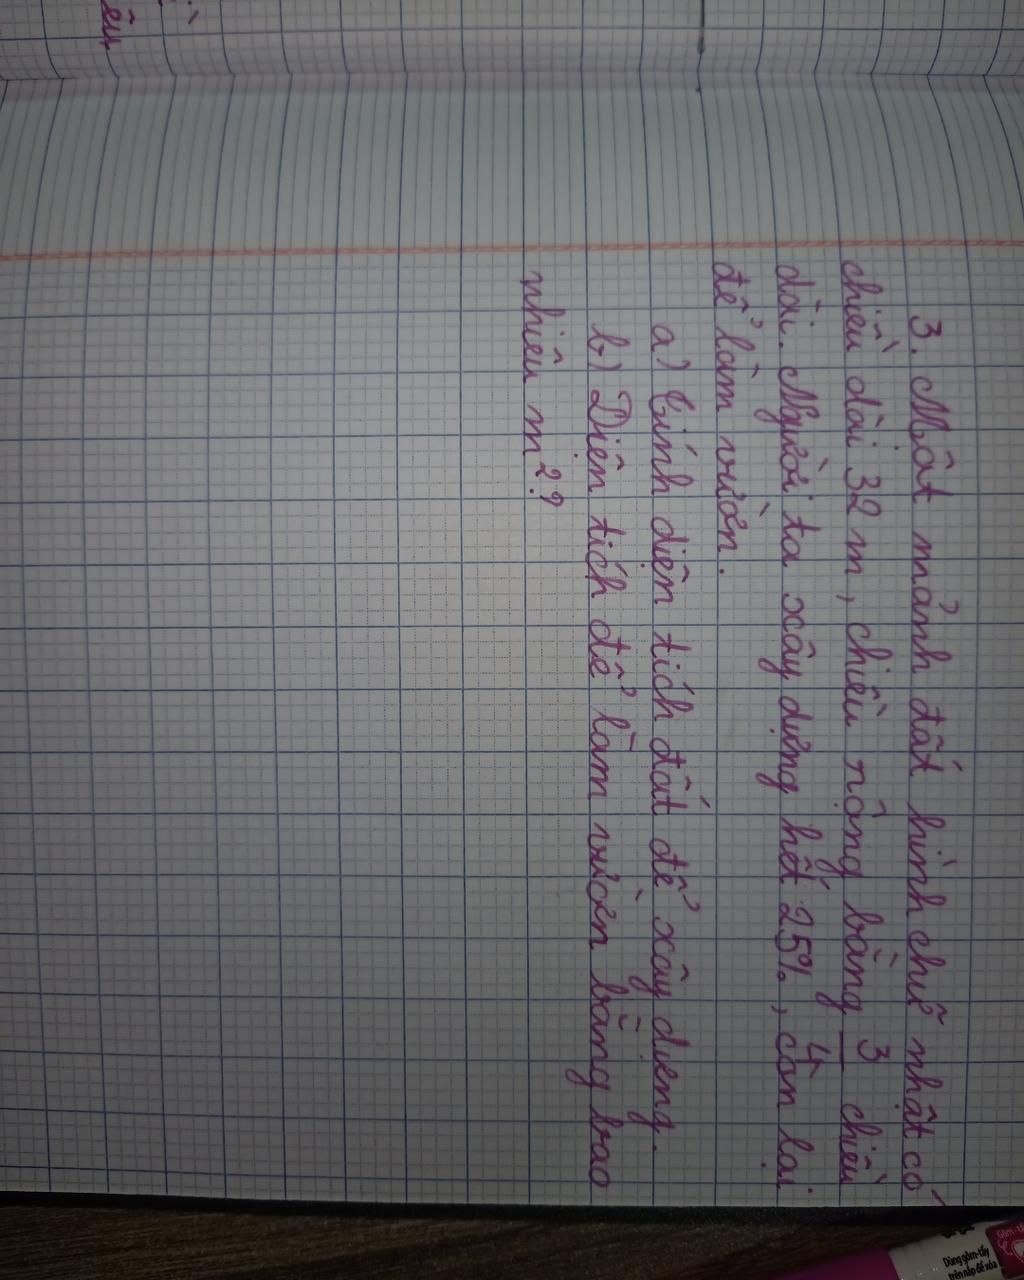 3. Một mảnh đất hình chữ nhật có
chiều dài 32 m, chiều rộng bằng 3/4 chiều
dài. Người ta xây dựng hết 25%, còn lại
để làm vườn.
a) Tính diện tích đất để xây dựng.
b) Diện tích để làm vườn bằng bao
nhiêu m²?
Dùng gôm-tẩy
trên nắp để xóa